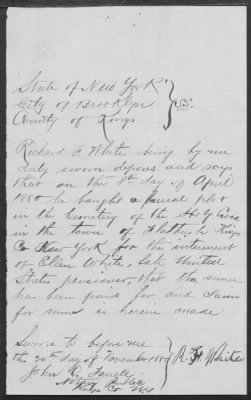 State of New York
City of Brooklyn } SS.
County of Kings
Richard F. White being by me
duly sworn deposes and says
that on the 8th day of April
1880 he bought a plot
in the Cemetery of the Holy Cross
in the town of Flatbush Kings
Co New York for the interment
of Ellen White, late United
States pensioner, that the same
has been paid for and
for same is herein made
Sworn to before me
the 20th day of November 188 } R. F. White
John R. Farrell
Notary Public
Kings Co N.Y.